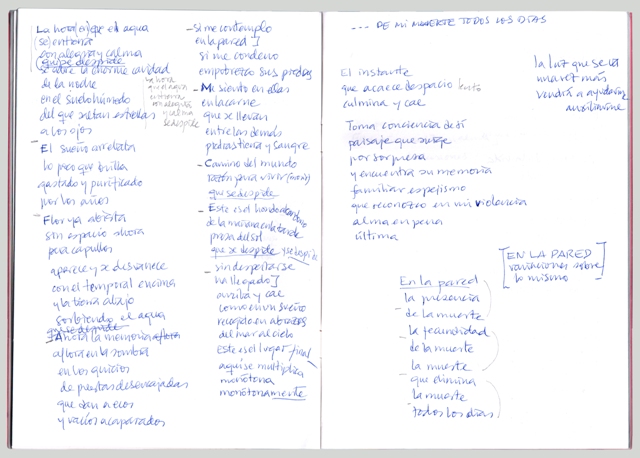 La hora en que el agua
(se) entierra
con alegría y calma
que se despide
se abre la enorme cavidad
de la noche
en el suelo húmedo
del que saltan estrellas
a los ojos
la hora
que el agua
entierra
con alegría
y calma
se despide
– El sueño arrebata
lo poco que brilla
gastado y purificado
por los años
– Flor ya abierta
sin espacio ahora
para capullos
aparece y se desvanece
con el temporal encima
y la tierra abajo
sorbiendo el agua
que se despide
Ahora la memoria aflora
aflora en la sombra
en los quicios
de puertas desencajadas
que dan a ecos
y vacíos acaparados
– si me contemplo
en la pared ]
si me condeno
empobrezco sus piedras
– Me siento en ellas
en la carne
que se llevan
entre los demás
piedras tierra y sangre
– Camino del mundo
razón para vivir (morir)
que se despide
– Este es el hondo
de la mañana en la tarde
presa del sol
que se despide y se
– sin despertarse
ha llegado ]
auxilia y cae
como en un sueño
recogido en
del mar al cielo
este es el lugar final
aquí se multiplica
monótona
monótonamente
... DE MI MUERTE TODOS LOS DÍAS
El instante
que acaece despacio lento
culmina y cae
la luz que se va
una vez más
vendrá a ayudarme
auxiliarme
Toma conciencia de sí
paisaje que surge
por sorpresa
y encuentra su memoria
familiar espejismo
que reconozco en mi violencia
alma en pena
última
[EN LA PARED
variaciones sobre
lo mismo]
En la pared
la presencia
– de la muerte
la fecundidad
– de la muerte
la muerte
– que elimina
la muerte
– todos los días